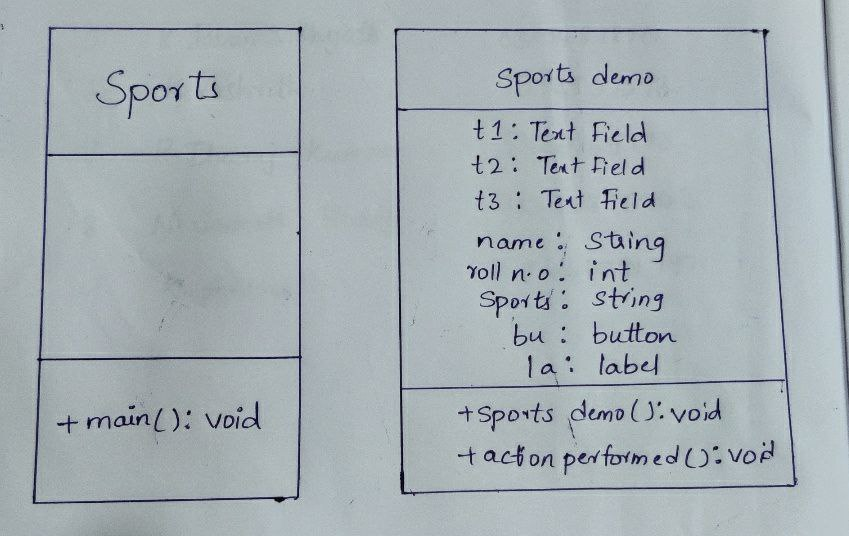 Sports
+ main(): void
Sports demo
t1: Text Field
t2: Text Field
t3: Text Field
name: String
roll n.o: int
Sports: String
bu: button
la: label
+ Sports demo(): void
+ action performed(): void